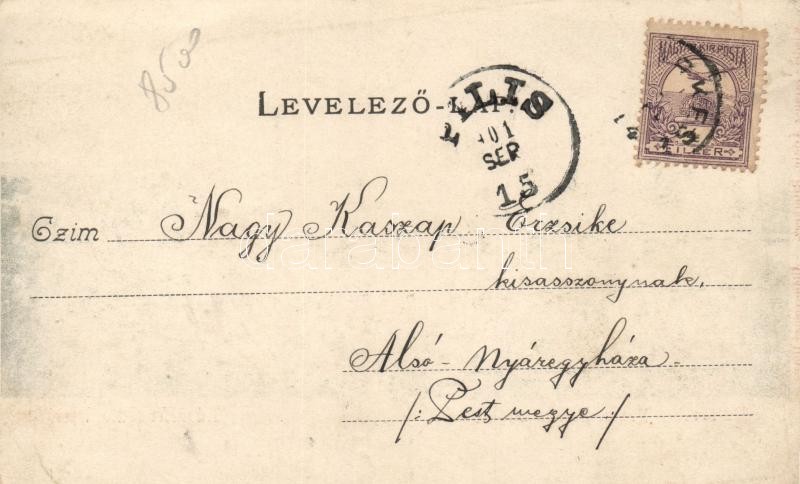 853
LEVELEZŐ-LAP.
MAGYAR KIR. POSTA
FILLÉR
PILIS
901
SEP
15
Czim Nagy Kaszap Erzsike
kisasszonynak.
Alsó-Nyáregyháza
/: Pest megye :/
darabanth